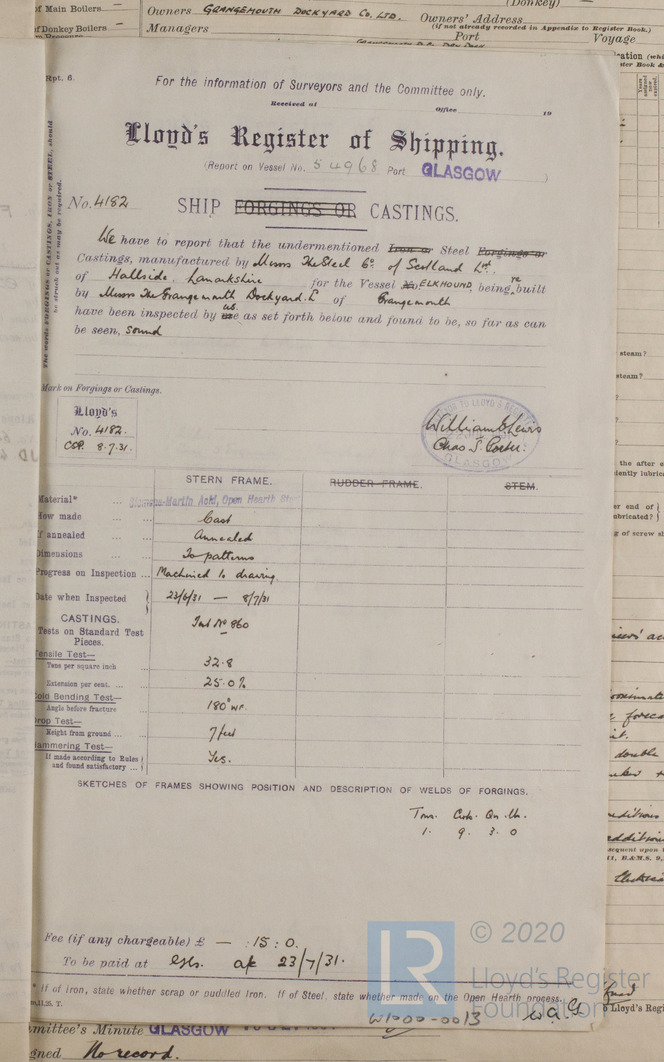 of Main Boilers
of Donkey Boilers
Owners GRANGEMOUTH DOCKYARD CO. LTD.
Managers
(Donkey)
Owners' Address
(if not already recorded in Appendix to Register Book.)
Port Voyage
Rpt. 6.
For the information of Surveyors and the Committee only.
Received at Office 19
Lloyd's Register of Shipping.
(Report on Vessel No. 54968 Port GLASGOW )
The words FORGINGS or CASTINGS, IRON or STEEL, should
be struck out as may be required.
No. 4182
SHIP FORGINGS OR CASTINGS.
We have to report that the undermentioned Iron or Steel Forgings or
Castings, manufactured by Messrs The Steel Co. of Scotland Ltd.
of Hallside, Lanarkshire for the Vessel No. ELKHOUND, being re built
by Messrs The Grangemouth Dockyard. Co of Grangemouth
have been inspected by us me as set forth below and found to be, so far as can
be seen, sound
Mark on Forgings or Castings.
Lloyd's
No. 4182.
CSP. 8.7.31.
William G Lewis
Chas S. Porter.
GLASGOW
STERN FRAME. RUDDER FRAME. STEM.
Material* ... Siemens-Martin Acid, Open Hearth Steel
How made ... Cast
If annealed ... Annealed
Dimensions ... To patterns
Progress on Inspection ... Machined to drawing.
Date when Inspected 23/6/31 — 8/7/31
CASTINGS.
Tests on Standard Test
Pieces.
Test No 860
Tensile Test—
Tons per square inch ... 32.8
Extension per cent. ... 25.0%
Cold Bending Test—
Angle before fracture 180°
Drop Test—
Height from ground ... 7 feet
Hammering Test—
If made according to Rules
and found satisfactory ... Yes.
SKETCHES OF FRAMES SHOWING POSITION AND DESCRIPTION OF WELDS OF FORGINGS.
Tons. Cwts. Qrs. Lbs.
1. 9. 3. 0
Fee (if any chargeable) £ — : 15 : 0.
To be paid at Gls. a/c 23/7/31.
* If of Iron, state whether scrap or puddled Iron. If of Steel, state whether made on the Open Hearth process.
© 2020
Lloyd's Register
Foundation
W1000-0013
Committee's Minute GLASGOW
No record.